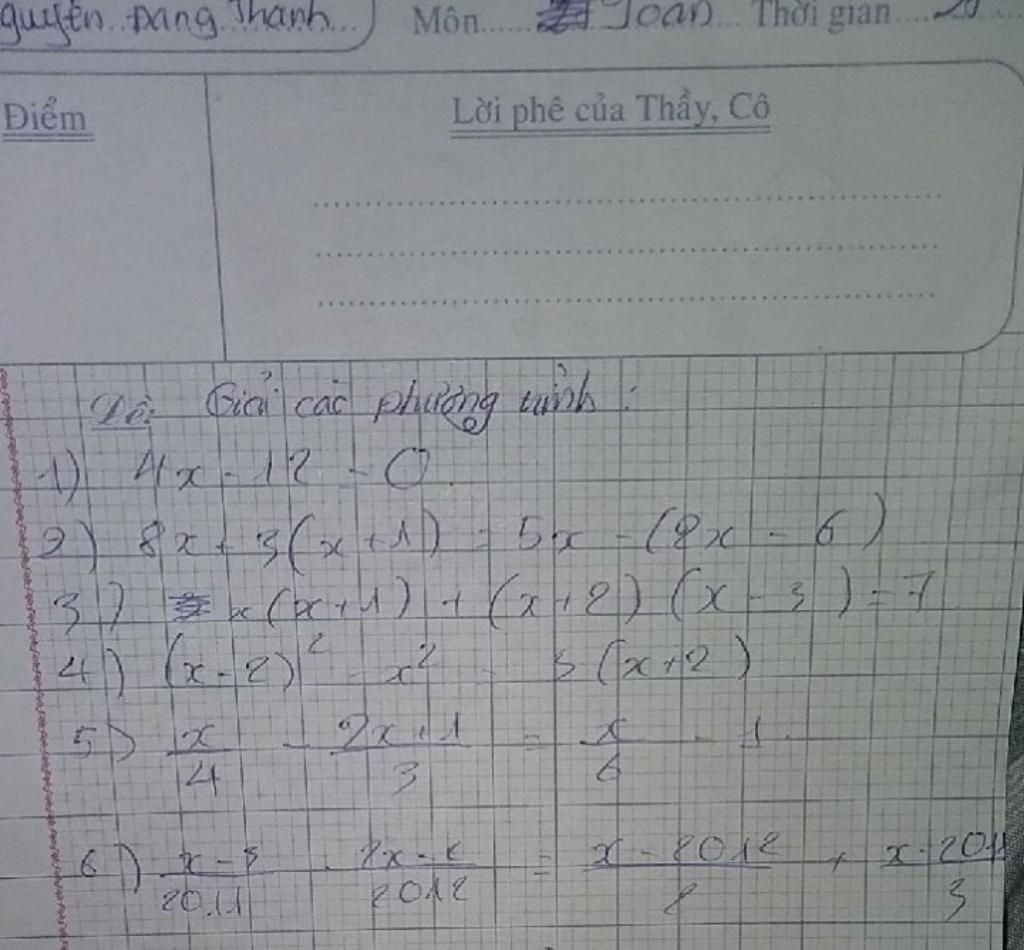 guyễn Đăng Thành Môn Toán Thời gian 20
Điểm
Lời phê của Thầy, Cô
Đề: Giải các phương trình:
1) 4x - 12 = 0
2) 8x + 3(x+1) = 5x - (2x - 6)
3) x(x+1) + (x+2)(x-3) = 7
4) (x-2)² - x² = 3(x+2)
5) x/4 - 2x+1/3 = x/6 - 1
6) x-3/2011 - 2x-2/2012 = x-2012/2 + x-2011/3